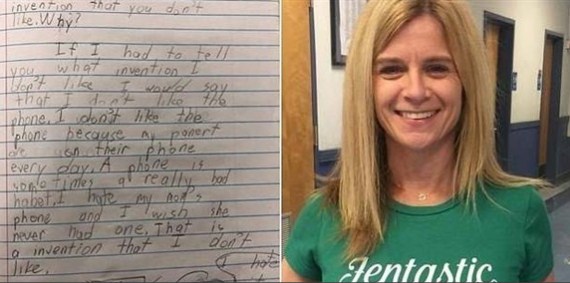 invention that you don't
like. Why?
If I had to tell
you what invention I
don't like I would say
that I don't like the
phone. I don't like the
phone because my panert
are on their phone
every day. A phone is
sometimes a really bad
habet. I hate my mom's
phone and I wish she
never had one. That is
a invention that I don't
like.
I hate
Jentastic